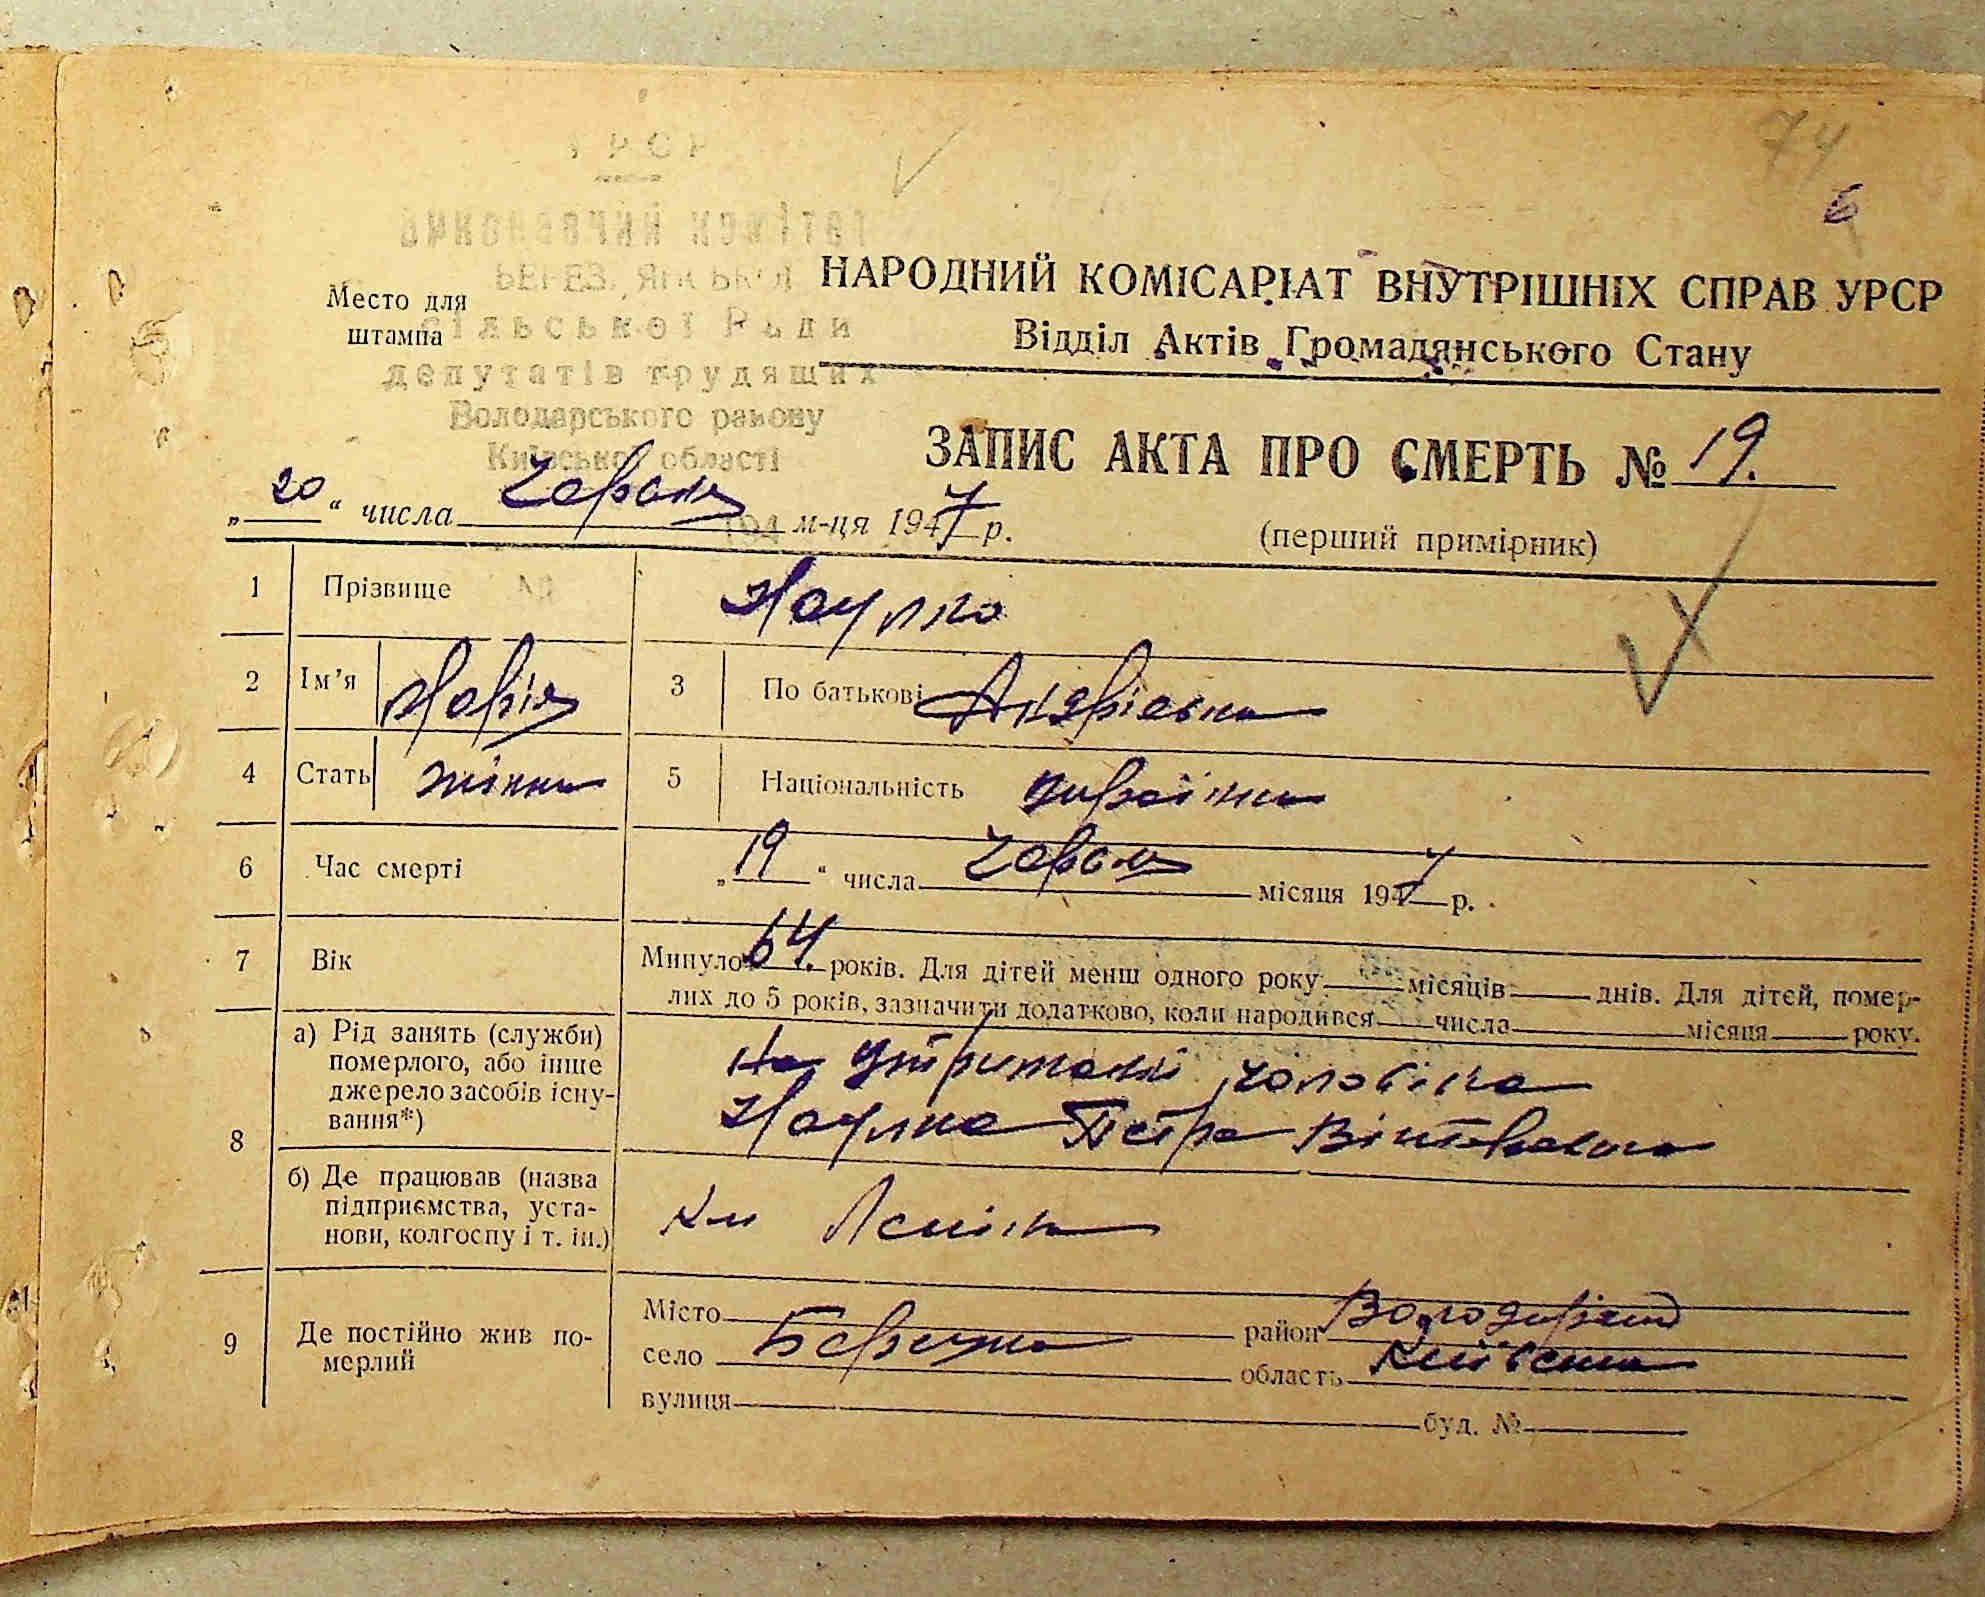 74
6
УРСР
Виконавчий комітет
сільської Ради
депутатів трудящих
Володарського району
Київської області
Место для
штампа
НАРОДНИЙ КОМІСАРІАТ ВНУТРІШНІХ СПРАВ УРСР
Відділ Актів Громадянського Стану
ЗАПИС АКТА ПРО СМЕРТЬ № 19.
„20“ числа Червня м-ця 1947 р.
(перший примірник)
1 Прізвище Наумко
2 Ім'я Марія 3 По батькові Андріевна
4 Стать жінка 5 Національність українка
6 Час смерті „19“ числа Червня місяця 1947 р.
7 Вік Минуло 64. років. Для дітей менш одного року місяців днів. Для дітей, помер-
лих до 5 років, зазначити додатково, коли народився числа місяця року.
8 а) Рід занять (служби)
померлого, або інше
джерело засобів існу-
вання*)
На утриманні чоловіка
Наумка Петра Вікторовича
б) Де працював (назва
підприємства, уста-
нови, колгоспу і т. ін.)
Км Леніна
9 Де постійно жив по-
мерлий
Місто район Володарський
село Березна область Київська
вулиця буд. №